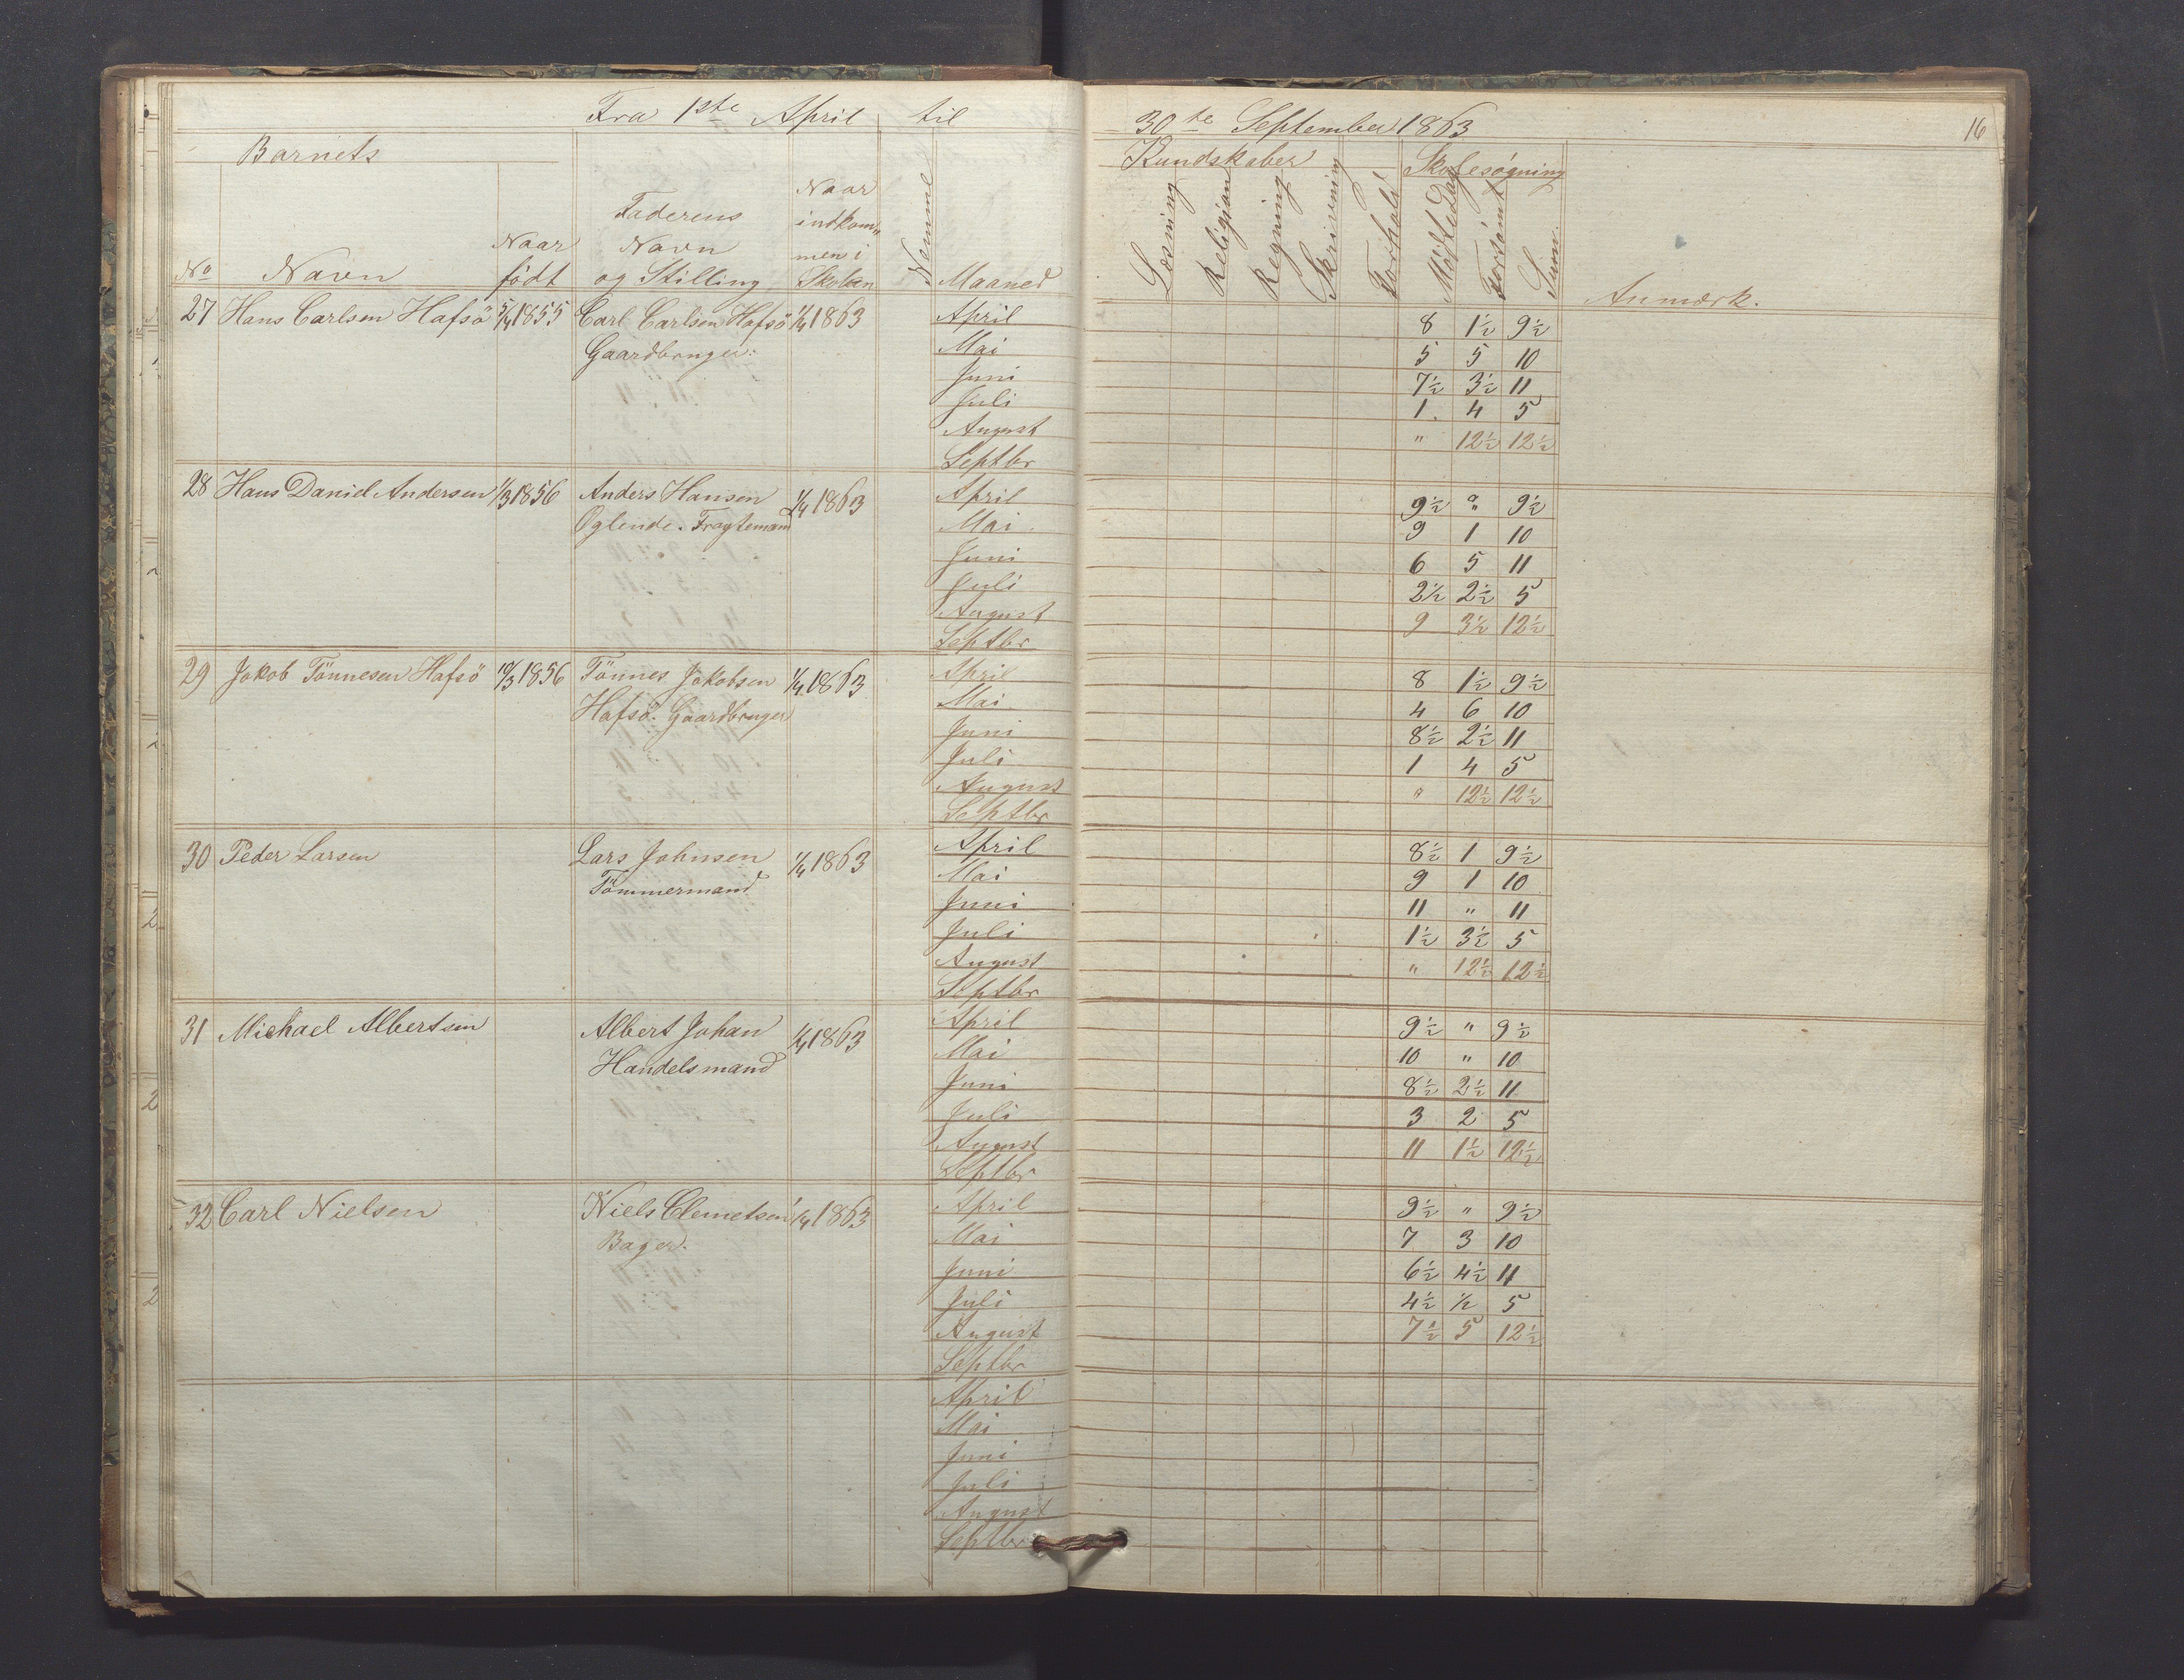 Fra 1ste April til 30te September 1863
16
Barnets
Kundskaber
Skolesøgning
No
Navn
Naar født
Faderens Navn og Stilling
Naar indkommen i Skolen
Nemme
Maaned
Læsning
Religion
Regning
Skrivning
Forhold
Mödte Dag
Forsømt
Sum.
Anmærk.
27 Hans Carlsen Hafsö 5/4 1855 Carl Carlsen Hafsö 1/4 1863 April 8 1½ 9½
Gaardbruger: Mai 5 5 10
Juni 7½ 3½ 11
Juli 1. 4 5
August " 12½ 12½
Septbr
28 Hans Daniel Andersen 1/3 1856 Anders Hansen 1/4 1863 April 9½ " 9½
Oglende. Fragtemand Mai. 9 1 10
Juni 6 5 11
Juli 2½ 2½ 5
August 9 3½ 12½
Septbr
29 Jakob Tönnesen Hafsö 10/3 1856 Tönnes Jakobsen 1/4 1863 April 8 1½ 9½
Hafsö. Gaardbruger Mai. 4 6 10
Juni 8½ 2½ 11
Juli 1 4 5
August " 12½ 12½
Septbr
30 Peder Larsen Lars Johnsen 1/4 1863 April 8½ 1 9½
Tömmermand Mai 9 1 10
Juni 11 " 11
Juli 1½ 3½ 5
August " 12½ 12½
Septbr
31 Michael Albertsen Albert Johan 1/4 1863 April 9½ " 9½
Handelsmand Mai 10 " 10
Juni 8½ 2½ 11
Juli 3 2 5
August 11 1½ 12½
Septbr
32 Carl Nielsen Niels Clemetsen 1/4 1863 April 9½ " 9½
Bager. Mai 7 3 10
Juni 6½ 4½ 11
Juli 4½ ½ 5
August 7½ 5 12½
Septbr
April
Mai
Juni
Juli
August
Septbr